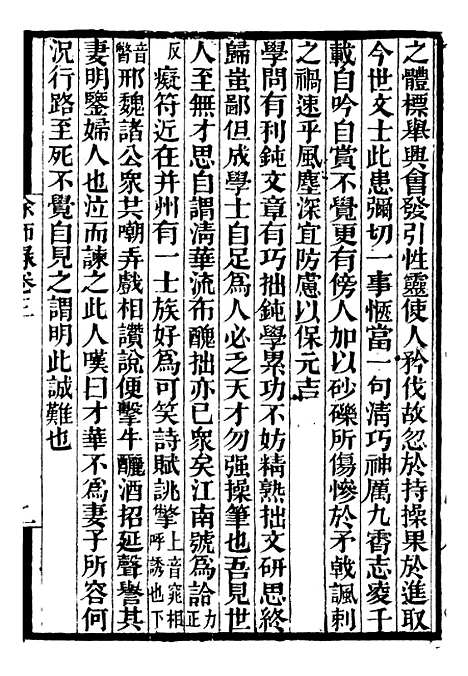 之體標舉興會發引性靈使人矜伐故忽於持操果於進取
今世文士此患彌切一事愜當一句清巧神厲九霄志凌千
載自吟自賞不覺更有傍人加以砂礫所傷慘於矛戟諷刺
之禍速乎風塵深宜防慮以保元吉
學問有利鈍文章有巧拙鈍學累功不妨精熟拙文研思終
歸蚩鄙但成學士自足為人必乏天才勿强操筆也吾見世
人至無才思自謂清華流布醜拙亦已衆矣江南號為詅力正
反癡符近在并州有一士族好為可笑詩賦誂擎上音窕相呼誘也下
音瞥邢魏諸公衆共嘲弄戲相讚說便擊牛釃酒招延聲譽其
妻明鑒婦人也泣而諫之此人嘆曰才華不為妻子所容何
況行路至死不覺自見之謂明此誠難也
余師錄卷三